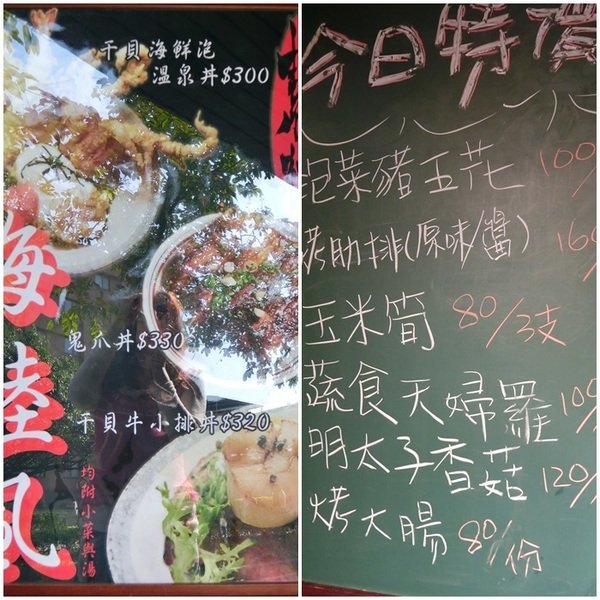 干貝海鮮泡
溫泉丼$300
鬼爪丼$330
干貝牛小排丼$320
海陸風
均附小菜與湯
今日特價
泡菜豬五花 100/
烤肋排(原味/醬) 160
玉米筍 80/3支
蔬食天婦羅 100
明太子香菇 120/
烤大腸 80/份